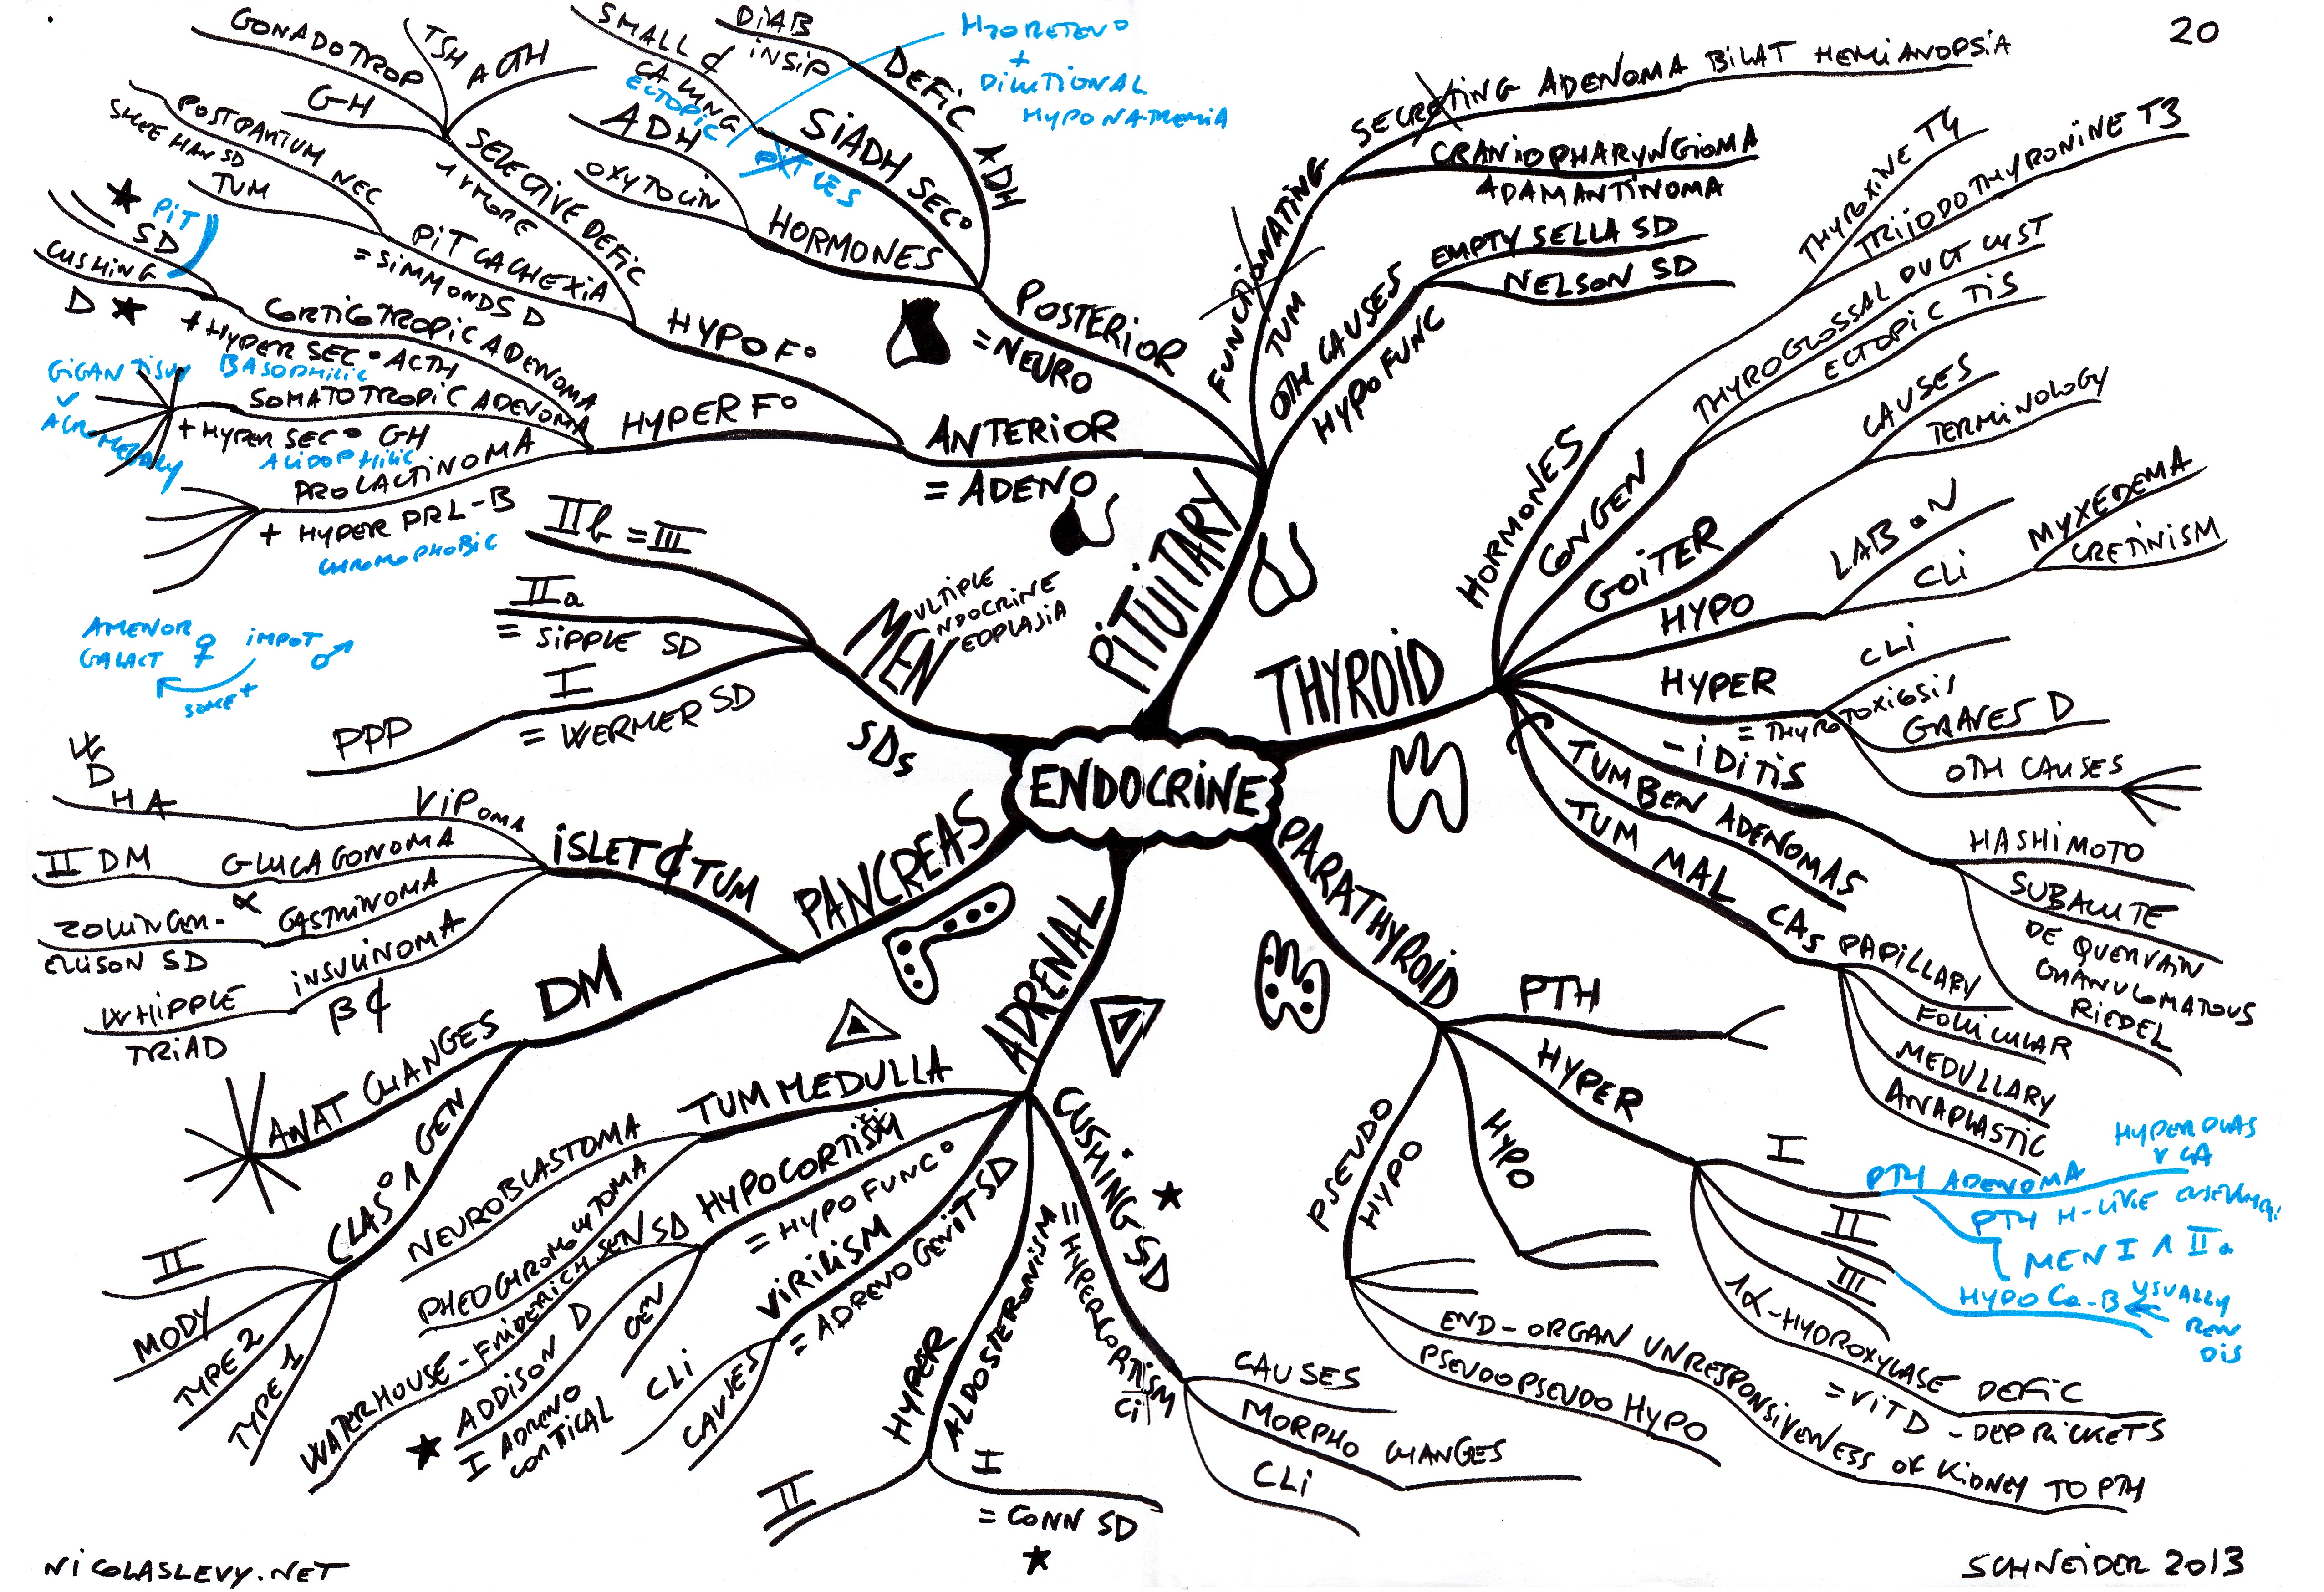 20
ENDOCRINE
PITUITARY
POSTERIOR
= NEURO
DEFIC ADH
DIAB
INSIP
SIADH SEC°
SMALL ¢
CA LUNG
ECTOPIC
PIT LES
H2O RETEN°
+
DILUTIONAL
HYPONATREMIA
HORMONES
ADH
OXYTOCIN
ANTERIOR
= ADENO
HYPO F°
SELECTIVE DEFIC
1 V MORE
GONADOTROP
TSH
ACTH
GH
PIT CACHEXIA
= SIMMONDS D
POSTPARTUM NEC
SHEEHAN SD
TUM
HYPER F°
CORTICOTROPIC ADENOMA
+ HYPER SEC° ACTH
BASOPHILIC
PIT
SD
CUSHING
D
SOMATOTROPIC ADENOMA
+ HYPER SEC° GH
ACIDOPHILIC
GIGANTISM
V
ACROMEGALY
PROLACTINOMA
+ HYPER PRL-B
CHROMOPHOBIC
AMENOR
GALACT ♀
IMPOT ♂
SOME+
FUNCTIONATING
TUM
SECRETING ADENOMA BILAT HEMIANOPSIA
CRANIOPHARYNGIOMA
ADAMANTINOMA
OTH CAUSES
HYPOFUNC
EMPTY SELLA SD
NELSON SD
THYROID
HORMONES
THYROXINE T4
TRIIODOTHYRONINE T3
CONGEN
THYROGLOSSAL DUCT CYST
ECTOPIC TIS
GOITER
CAUSES
TERMINOLOGY
HYPO
LAB
CLI
MYXEDEMA
CRETINISM
HYPER
= THYROTOXICOSIS
CLI
GRAVES D
OTH CAUSES
-IDITIS
HASHIMOTO
SUBACUTE
DE QUERVAIN
GRANULOMATOUS
RIEDEL
TUM BEN ADENOMAS
TUM MAL CAs
PAPILLARY
FOLLICULAR
MEDULLARY
ANAPLASTIC
PARATHYROID
PTH
HYPER
I
PTH ADENOMA
HYPERPLAS
V CA
PTH H-LIKE
MEN I ∧ IIa
II
HYPO Ca-B ← USUALLY
REN
DIS
III
1α-HYDROXYLASE DEFIC
= VIT D-DEP RICKETS
HYPO
PSEUDO
HYPO
END-ORGAN UNRESPONSIVENESS OF KIDNEY TO PTH
PSEUDOPSEUDO HYPO
ADRENAL
CUSHING SD
= HYPERCORTISM
CI
CAUSES
MORPHO CHANGES
CLI
HYPER
ALDOSTERONISM
I
= CONN SD
II
VIRILISM
= ADRENOGENIT SD
CLI
CAUSES
HYPOCORTISM
= HYPOFUNC°
GEN
ADDISON D
I ADRENO
CORTICAL
WATERHOUSE-FRIDERICHSEN SD
TUM MEDULLA
NEUROBLASTOMA
PHEOCHROMOCYTOMA
PANCREAS
DM
ANAT CHANGES
CLAS° ∧ GEN
II
MODY
TYPE 2
TYPE 1
ISLET ¢ TUM
VIPOMA
W
D
HA
GLUCAGONOMA
α
II DM
GASTRINOMA
ZOLLINGER-
ELLISON SD
INSULINOMA
β¢
WHIPPLE
TRIAD
MULTIPLE
ENDOCRINE
NEOPLASIA
SDs
IIb = III
IIa
= SIPPLE SD
I
= WERMER SD
PPP
NICOLASLEVY.NET
SCHNEIDER 2013